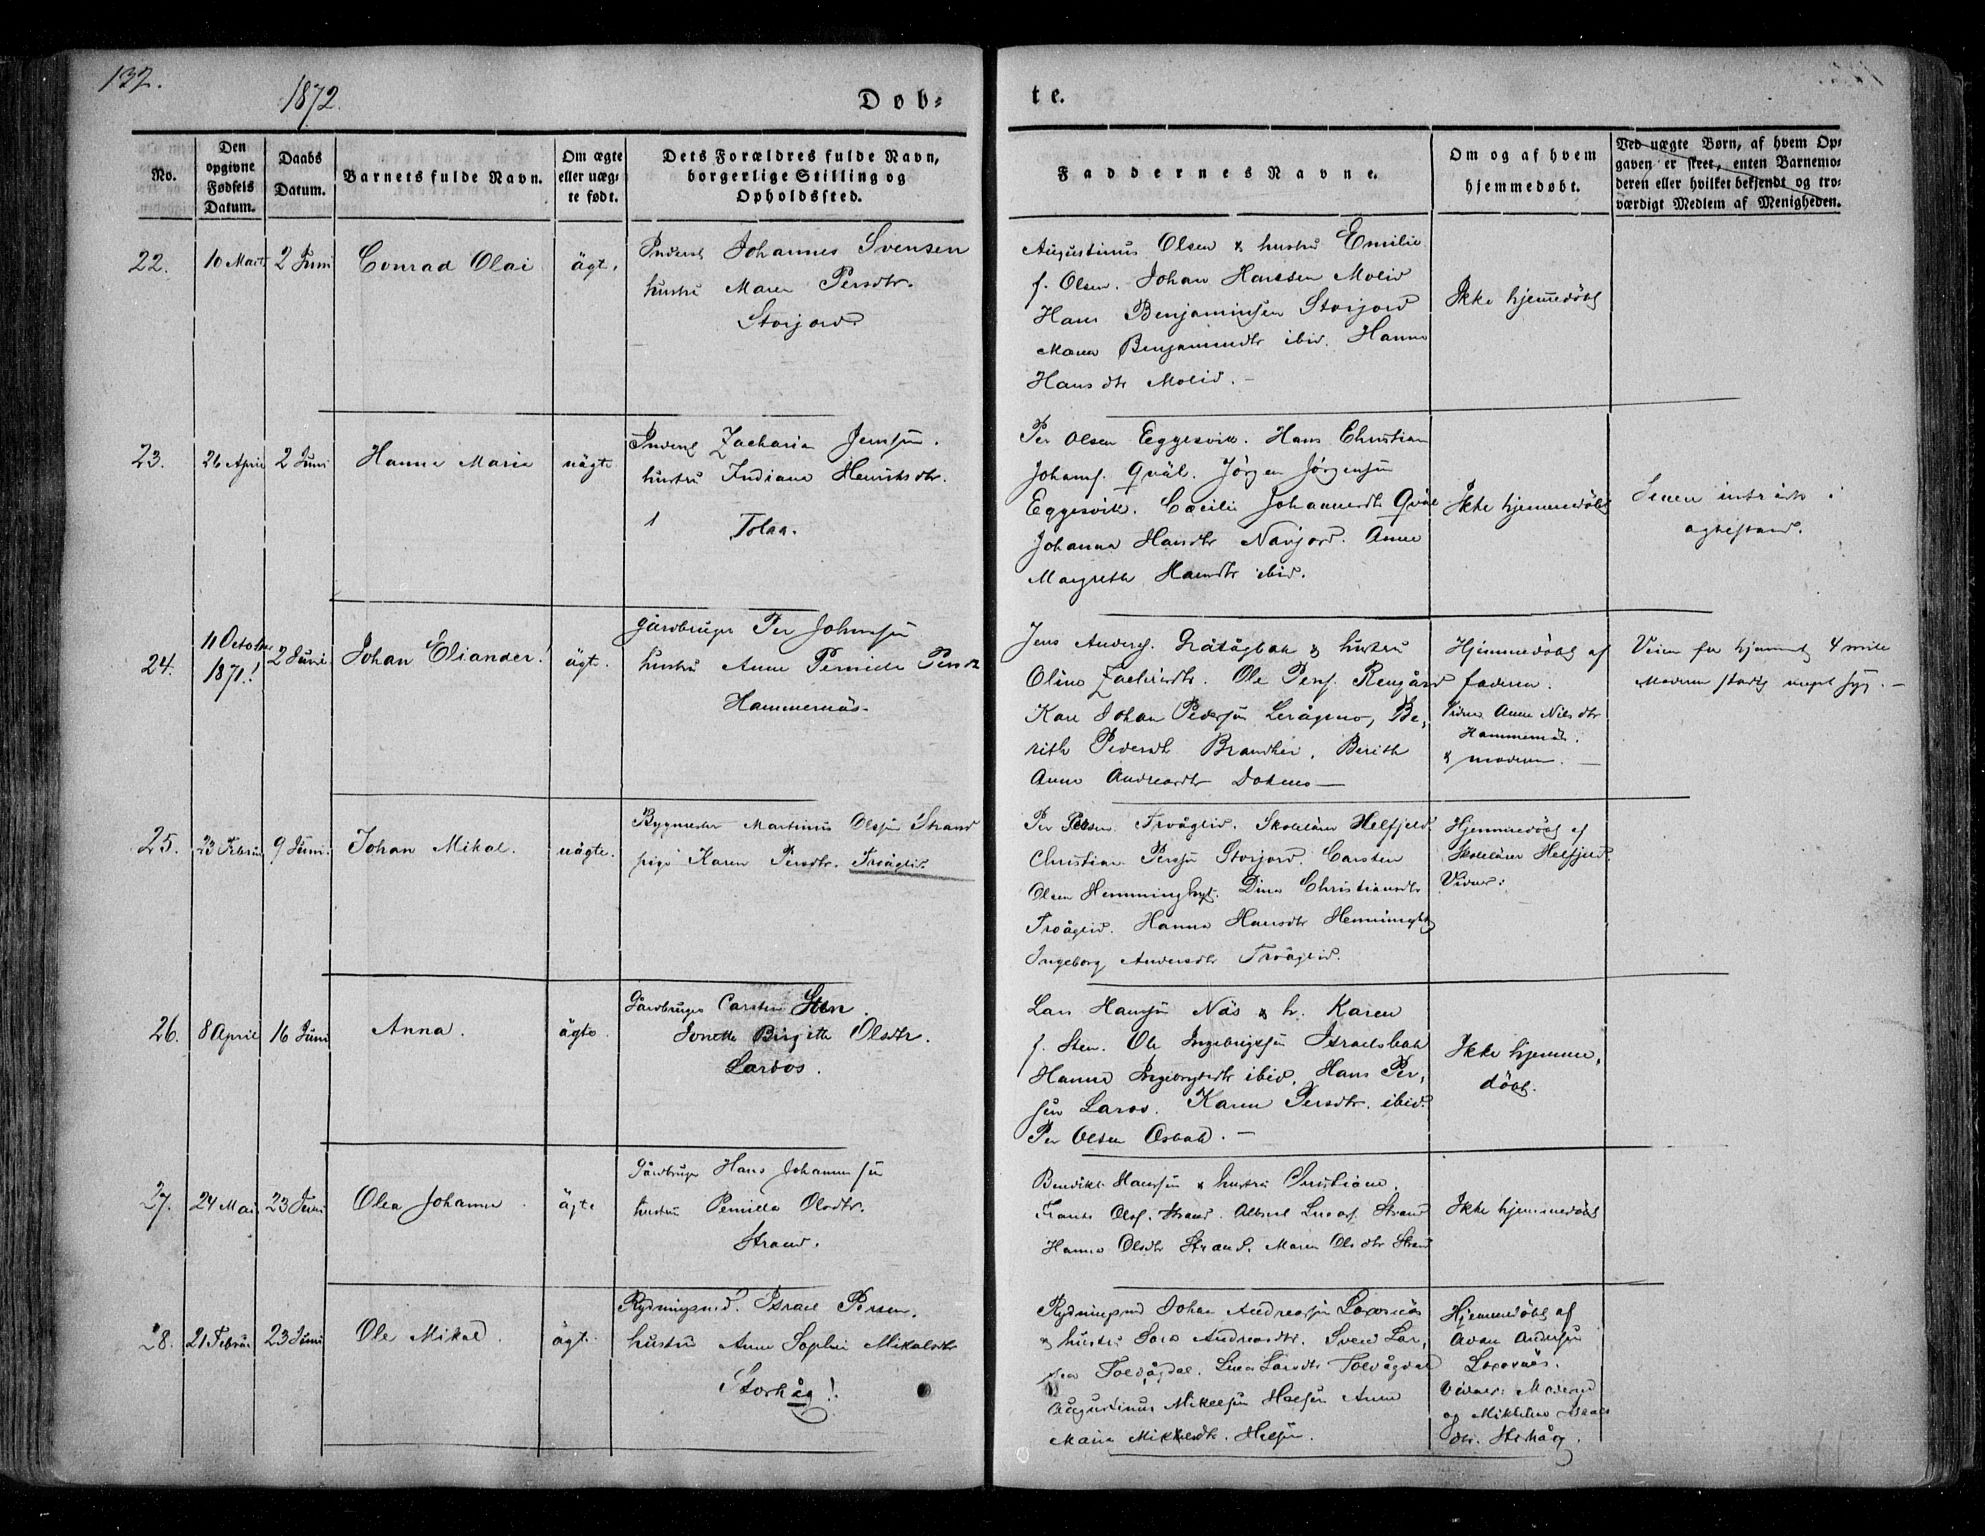 132.
1872.
Døb-
te.
No.
Den opgivne Fødsels Datum.
Daabs Datum.
Barnets fulde Navn.
Om ægte eller uægte født.
Dets Forældres fulde Navn, borgerlige Stilling og Opholdssted.
Faddernes Navne.
Om og af hvem hjemmedøbt.
Ved uægte Børn, af hvem Opgaven er skeet, enten Barnemoderen eller hvilket bekjendt og troværdigt Medlem af Menigheden.
22.
10 Marts
2 Juni
Conrad Olai
ägt.
Inderst Johannes Svensen
hustru Maren Persdtr.
Storjord
Augustinus Olsen & hustru Emilie
f. Olsen. Johan Hanssen Molid
Hans Benjaminsen Storjord
Maren Benjamindtr ibid. Hanna
Hansdtr Molid. –
Ikke hjemmedöbt
23.
26 April
2 Juni
Hanna Maria
uägte
Inderst Zacharia Jensen.
hustru Indiana Henriksdtr.
Tolaa.
Per Olsen Eggesvik. Hans Christian
Johansf. Qväl. Jörgen Jörgensen
Eggesvik. Cæcilie Johannesdtr Qväl
Johanna Hansdtr Navjord. Anne
Margrethe Hansdtr ibid.
Ikke hjemmedöbt
Senere inträdt i
ægtestand.
24.
11 October
1871!
2 Juni
Johan Eliander!
ägt.
Gårdbruger Per Johnsen
hustru Anne Pernille Persdtr
Hammernäs.
Jens Andersf. Gråtågbak & hustru
Oline Zachrisdtr. Ole Persf. Rengård
Karl Johan Pedersen Leråpmo, Be-
rith Pedersdtr Brandhei, Berith
Anne Andreasdtr Dokmo –
Hjemmedöbt af
faderen.
Vidner Anne Nilsdtr
Hammernäs.
& moderen. –
Veien fra hjemmet 4 mile
Moderen stadig meget syg. –
25.
23 Februar
9 Juni.
Johan Mikal.
uägte.
Bygmester Martinus Olsen Strand
pige Karen Persdtr. Troåglid.
Per Persen Troåglid. Skolelärer Helfjeld.
Christian Persen Storjord. Carsten
Olsen Hemminghyt. Dina Christiansdtr
Troåglid. Hanna Hansdtr Hemminghyt
Ingeborg Andersdtr Troåglid.
Hjemmedöbt af
Skolelärer Helfjeld.
Vidner:
26.
8 April
16 Juni
Anna.
ägte.
Gårdbruger Carsten Sten.
Jonette Birgitte Olsdtr.
Larsos.
Lars Hansen Näs & h. Karen
f. Sten. Ole Ingebrigtsen Israelsbak
Hanna Ingebrigtsdtr ibid. Hans Per-
sen Larso. Karen Persdtr. ibid.
Per Olsen Osbak. –
Ikke hjemme-
döbt.
27.
24 Mai
23 Juni
Olea Johanna.
ägte
Gårdbruger Hans Johannesen
hustru Pernille Olsdtr.
Strand.
Benedikt Hansen & hustru Christiane.
Frants Olsf. Strand. Albert Lucasf. Strand
Hanna Olsdtr Strand. Maren Olsdtr Strand
Ikke hjemmedöbt
28.
21 Februar
23 Juni
Ole Mikal
ägt.
Rydningsmd. Israel Persen.
hustru Anne Sophie Mikalsdtr
Storhåg!
Rydningsmd Johan Andreasen Loxovnäs
& hustru Sara Andreasdtr. Svend Lar-
sen Tolvågdal. Lina Larsdtr Tolvågdal
Augustinus Mikelsen Helsen Anne
Maria Mikkelsdtr. Helsen.
Hjemmedöbt af
Avan Andersen
Loxovnäs.
Vidner: Moderen
og Mikkeline Isaks
dtr. Storhåg.